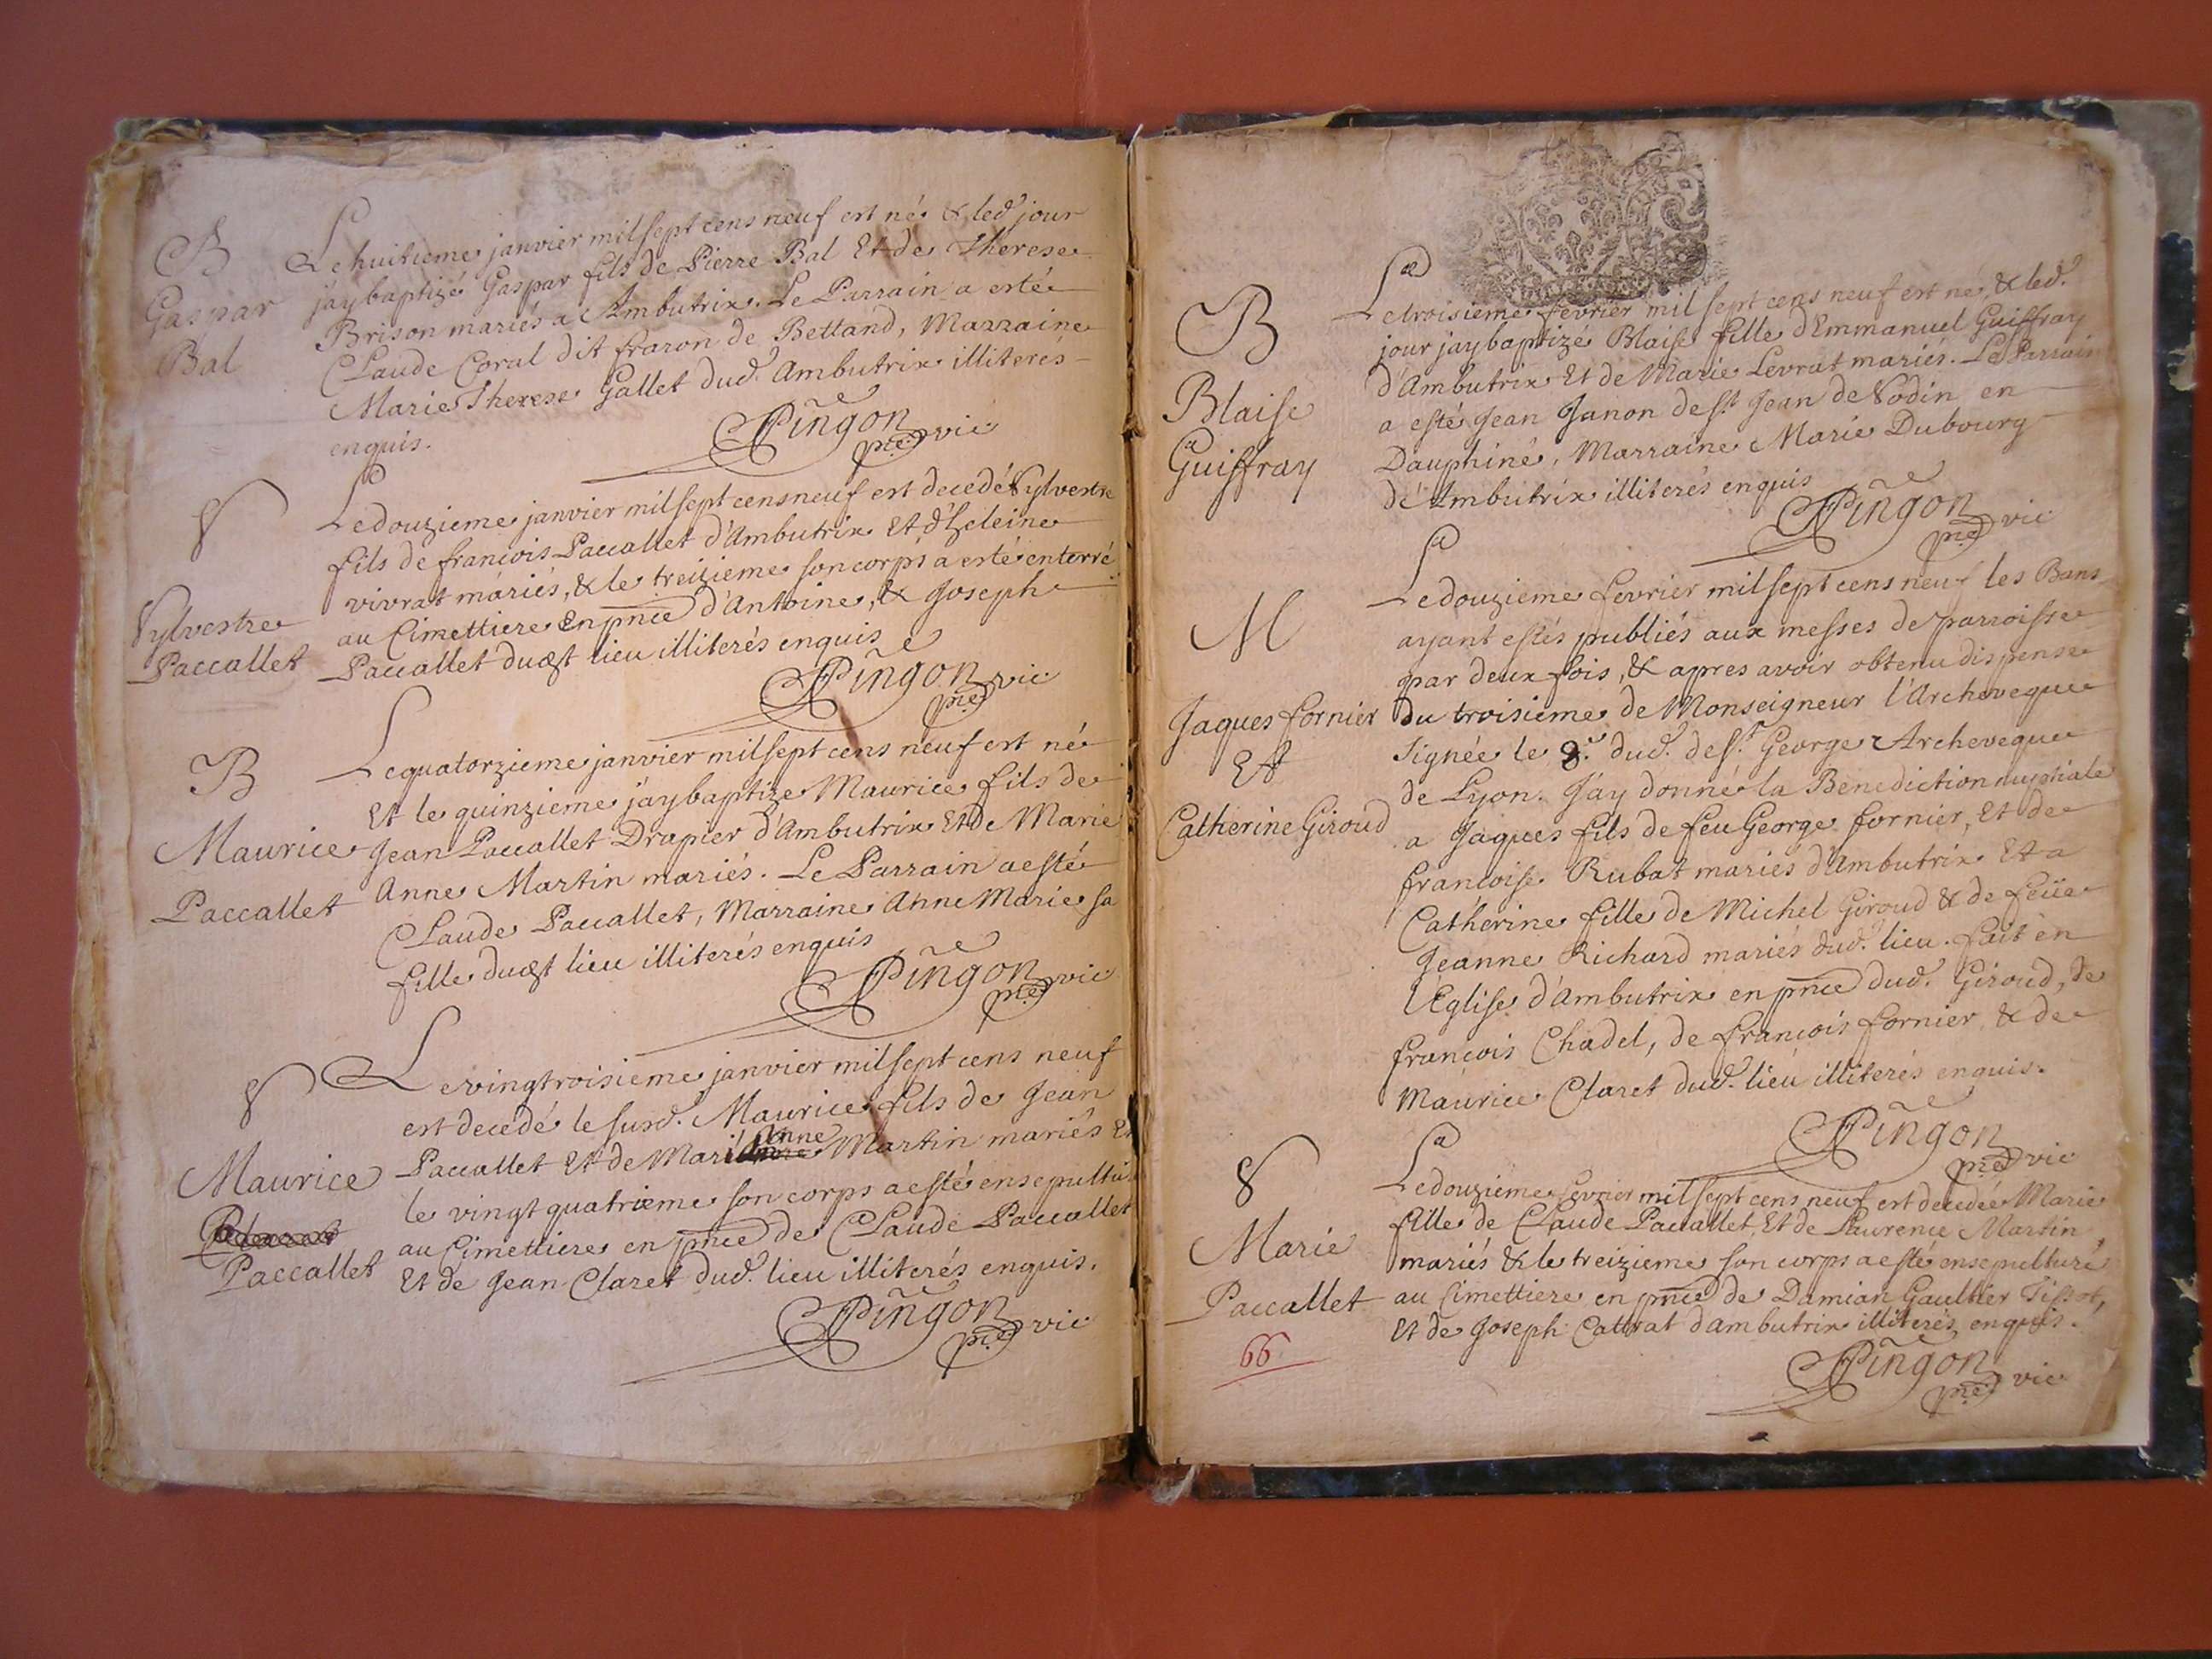 B
Gaspar
Bal
Le huitieme janvier mil sept cens neuf est né & led. jour
j'ay baptizé Gaspar fils de Pierre Bal Et de Therese
Brison mariés a Ambutrix. Le Parrain a esté
Claude Coral dit fraron de Bettand, Marraine
Marie Therese Gallet dud. Ambutrix illiterés
enquis.
Pingon
pre vic
S
Sylvestre
Paccallet
Le douzieme janvier mil sept cens neuf est decedé Sylvestre
fils de francois Paccallet d'Ambutrix Et d'heleine
vivrat mariés, & le treizieme son corps a esté enterré
au Cimettiere en pnce d'Antoine, & Joseph
Paccallet dudt lieu illiterés enquis
Pingon
pre vic
B
Maurice
Paccallet
Le quatorzieme janvier mil sept cens neuf est né
Et le quinzieme j'ay baptize Maurice fils de
Jean Paccallet Drapier d'Ambutrix Et de Marie
Anne Martin mariés. Le Parrain a esté
Claude Paccallet, Marraine Anne Marie sa
fille dudt lieu illiterés enquis
Pingon
pre vic
S
Maurice
Paccallet
Le vingtroisieme janvier mil sept cens neuf
est decedé le susd. Maurice fils de Jean
Paccallet Et de Mari Anne Martin mariés Et
le vingt quatrieme son corps a esté ensepultu
au Cimettiere en pnce de Claude Paccallet
Et de Jean Claret dud. lieu illiterés enquis.
Pingon
pre vic
B
Blaise
Guiffray
Le troisieme fevrier mil sept cens neuf est né, & led.
jour j'ay baptizé Blaise fille d'Emmanuel Guiffray
d'Ambutrix Et de Marie Levrat mariés. Le Parrain
a esté Jean Janon de St Jean de Vodin en
Dauphiné, Marraine Marie Dubourg
d'Ambutrix illiterés enquis
Pingon
pre vic
M
Jaques fornier
Et
Catherine Giroud
Le douzieme fevrier mil sept cens neuf les Bans
ayant estés publiés aux messes de parroisse
par deux fois, & apres avoir obtenu dispense
du troisieme de Monseigneur l'Archeveque
signée le 8e. dud. de St. George Archeveque
de Lyon. J'ay donné la Benediction nuptiale
a Jaques fils de feu George fornier, Et de
francoise Rubat mariés d'Ambutrix Et a
Catherine fille de Michel Giroud & de feüe
Jeanne Richard mariés dud. lieu. fait en
l'Eglise d'Ambutrix en pnce dud. Giroud, de
francois Chadel, de francois fornier & de
Maurice Claret dud. lieu illiterés enquis.
Pingon
pre vic
S
Marie
Paccallet
66
Le douzieme fevrier mil sept cens neuf est decedée Marie
fille de Claude Paccallet, Et de Laurence Martin,
mariés & le treizieme son corps a esté ensepulturé
au Cimettiere en pnce de Damian Gaultier Tissot,
Et de Joseph d'ambutrix illiterés enquis.
Pingon
pre vic